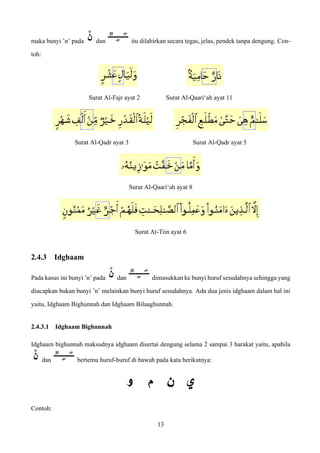 maka bunyi 'n' pada نْ dan ـًـٍـٌ itu dilahirkan secara tegas, jelas, pendek tanpa dengung. Con-
toh:
وَلَيَالٍ عَشْرٍ نَارٌ حَامِيَةٌ
Surat Al-Fajr ayat 2 Surat Al-Qaari'ah ayat 11
لَيْلَةُ ٱلْقَدْرِ خَيْرٌ مِّنْ أَلْفِ شَهْرٍ سَلَٰمٌ هِىَ حَتَّىٰ مَطْلَعِ ٱلْفَجْرِ
Surat Al-Qadr ayat 3 Surat Al-Qadr ayat 5
وَأَمَّا مَنْ خَفَّتْ مَوَٰزِينُهُۥ
Surat Al-Qaari'ah ayat 8
إِلَّا ٱلَّذِينَ ءَامَنُوا۟ وَعَمِلُوا۟ ٱلصَّٰلِحَٰتِ فَلَهُمْ أَجْرٌ غَيْرُ مَمْنُونٍ
Surat At-Tiin ayat 6
2.4.3 Idgham
Pada kasus ini bunyi 'n' pada نْ dan ـًـٍـٌ dimasukkan ke bunyi huruf sesudahnya sehingga yang
diucapkan bukan bunyi 'n' melainkan bunyi huruf sesudahnya. Ada dua jenis idgham dalam hal ini
yaitu, Idgham Bighunnah dan Idgham Bilaaghunnah.
2.4.3.1 Idgham Bighunnah
Idgham bighunnah maksudnya idgham disertai dengung selama 2 sampai 3 harakat yaitu, apabila
نْ dan ـًـٍـٌ bertemu huruf-huruf di bawah pada kata berikutnya:
ي ن م و
Contoh:
13